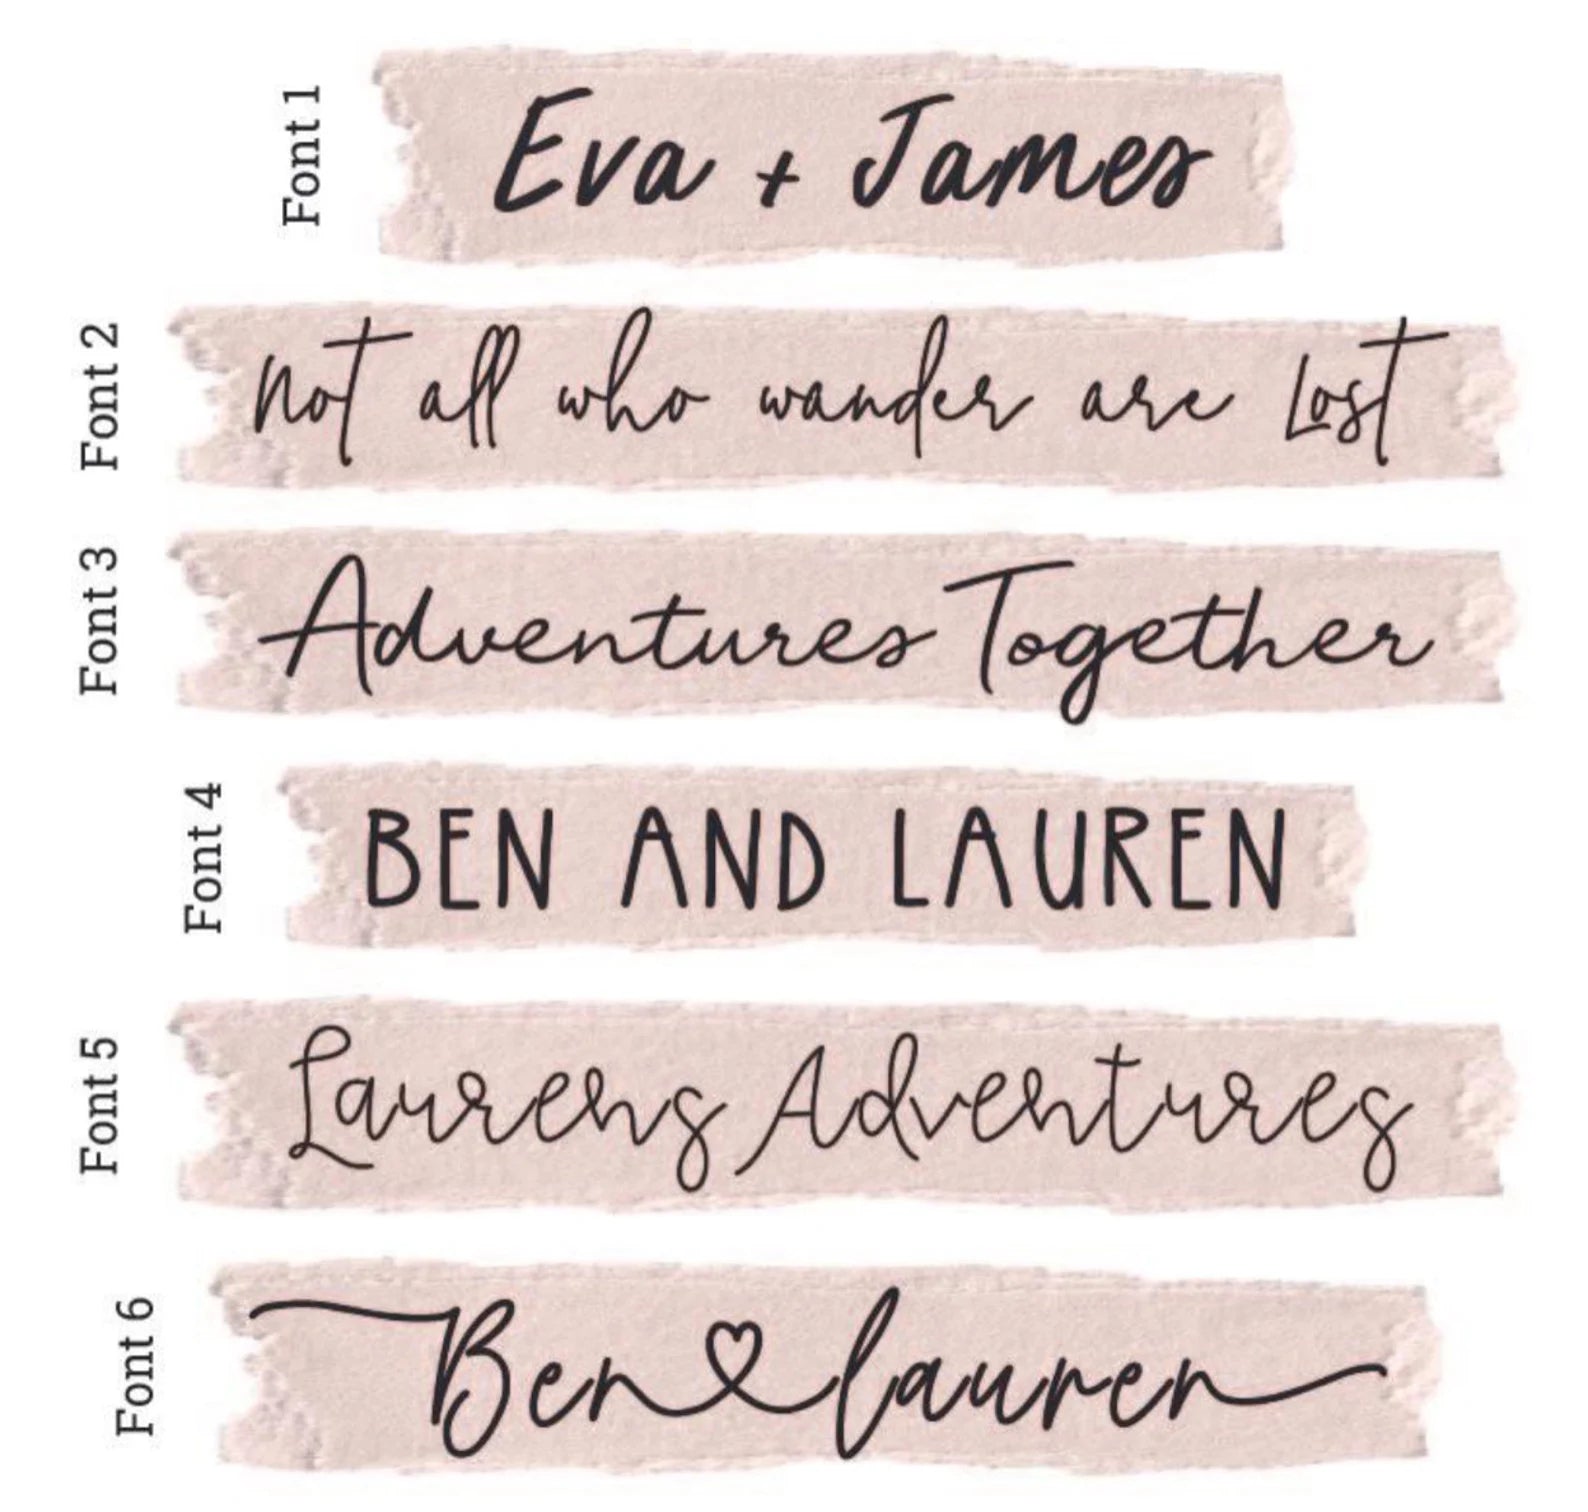 Font 1
Eva + James
Font 2
Not all who wander are Lost
Font 3
Adventures Together
Font 4
BEN AND LAUREN
Font 5
Laurens Adventures
Font 6
Ben♡lauren